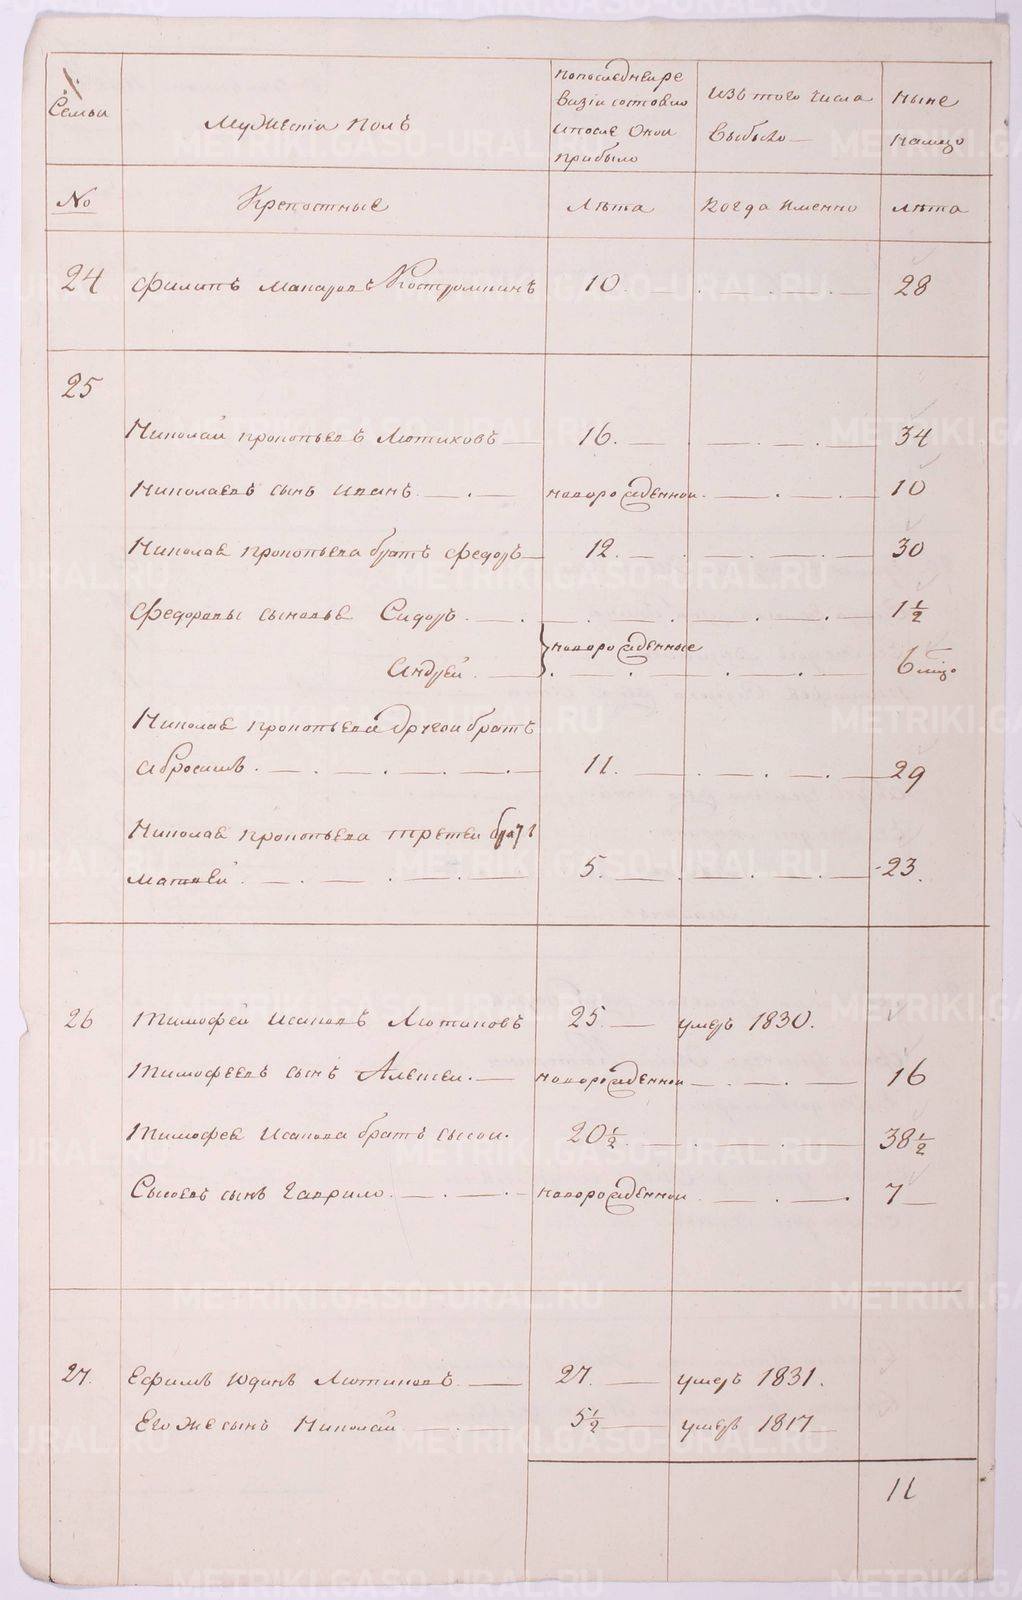 Семьи
Мужескiя Полъ
Попоследней ре
визiи состояло
ипосле Оной
прибыло
Изъ того Числа
Выбыло
Ныне
налицо
No
Крепостные
Лѣта
Когда Именно
лѣта
24 Филипъ Макаровъ Костромкинъ 10. 28
25
Николай прокопьевъ Лютиковъ 16. 34
Николаевъ сынъ иванъ новорожденной 10
Николая прокопьева братъ федоръ 12. 30
Федоровы сыновья Сидоръ 1 1/2
новорожденные
Андрей 6 мѣс.
Николая прокопьева другой братъ
Абросимъ 11. 29
Николая прокопьева третей братъ
матвей 5. 23.
26 Тимофей Исаковъ Лютиковъ 25 умеръ 1830.
Тимофеевъ сынъ Алексей новорожденной 16
Тимофея Исакова братъ сысой. 20 1/2 38 1/2
Сысоевъ сынъ гаврило новорожденной 7
27. Ефимъ Юдинъ Лютиковъ 27. умеръ 1831.
Его же сынъ Николай 5 1/2 умеръ 1817
11
METRIKI.GASO-URAL.RU